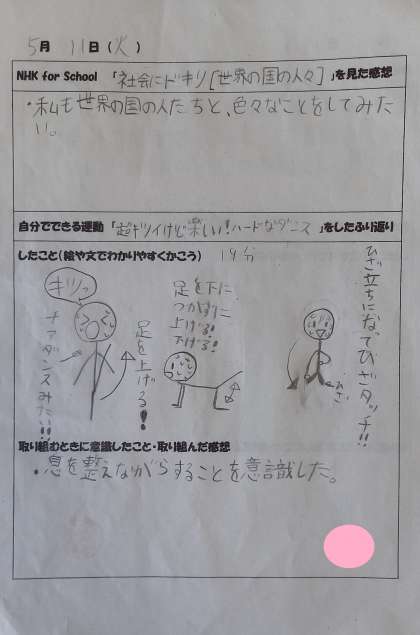 5月 11日(火)
NHK for School 「社会にドキリ[世界の国の人々]」を見た感想
・私も世界の国の人たちと、色々なことをしてみた
い。
自分でできる運動「超キツイけど楽しい!ハードなダンス」をしたふり返り
したこと(絵や文でわかりやすくかこう) 19分
キツっ
チアダンスみたい!!!
足を上げる!
足を下に
つかずに
上げる!
下げる!
ひざ立ちになってひざタッチ!!
ひざ
取り組むときに意識したこと・取り組んだ感想
・息を整えながらすることを意識した。